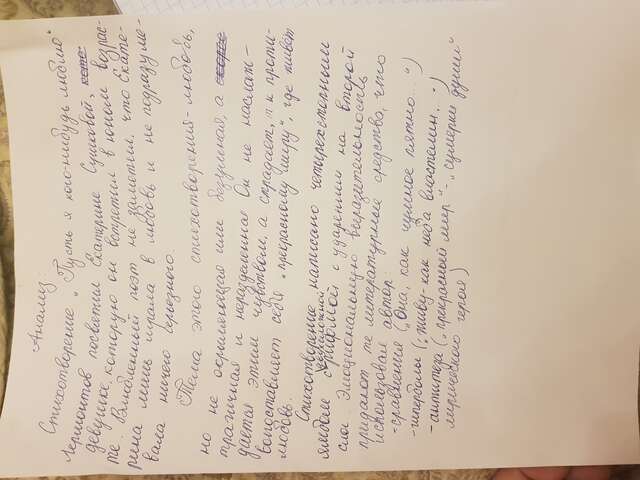 Анализ:
Стихотворение „Пусть я кого-нибудь люблю"
Лермонтов посвятил Екатерине Сушковой,
девушке, которую он встретил в юном возрас-
те. Влюбленный поэт не заметил, что Екате-
рина лишь играла в любовь и не подразуме-
вала ничего серьезного.
Тема этого стихотворения - любовь,
но не окрыляющая или безумная, а
трагичная и неразделенная. Он не наслаж-
дается этим чувством, а страдает, и проти-
вопоставляет себя „прекрасному миру", где живёт
любовь.
Стихотворение написано четырехстопным
ямбом с рифмой, с ударением на второй
слог. Эмоциональную выразительность
придают те литературные средства, что
использовал автор:
- сравнения („Она, как чумное пятно...")
- гиперболы („живу - как неба властелин...")
- антитеза („прекрасный мир" - „сумерки души"
лирического героя)